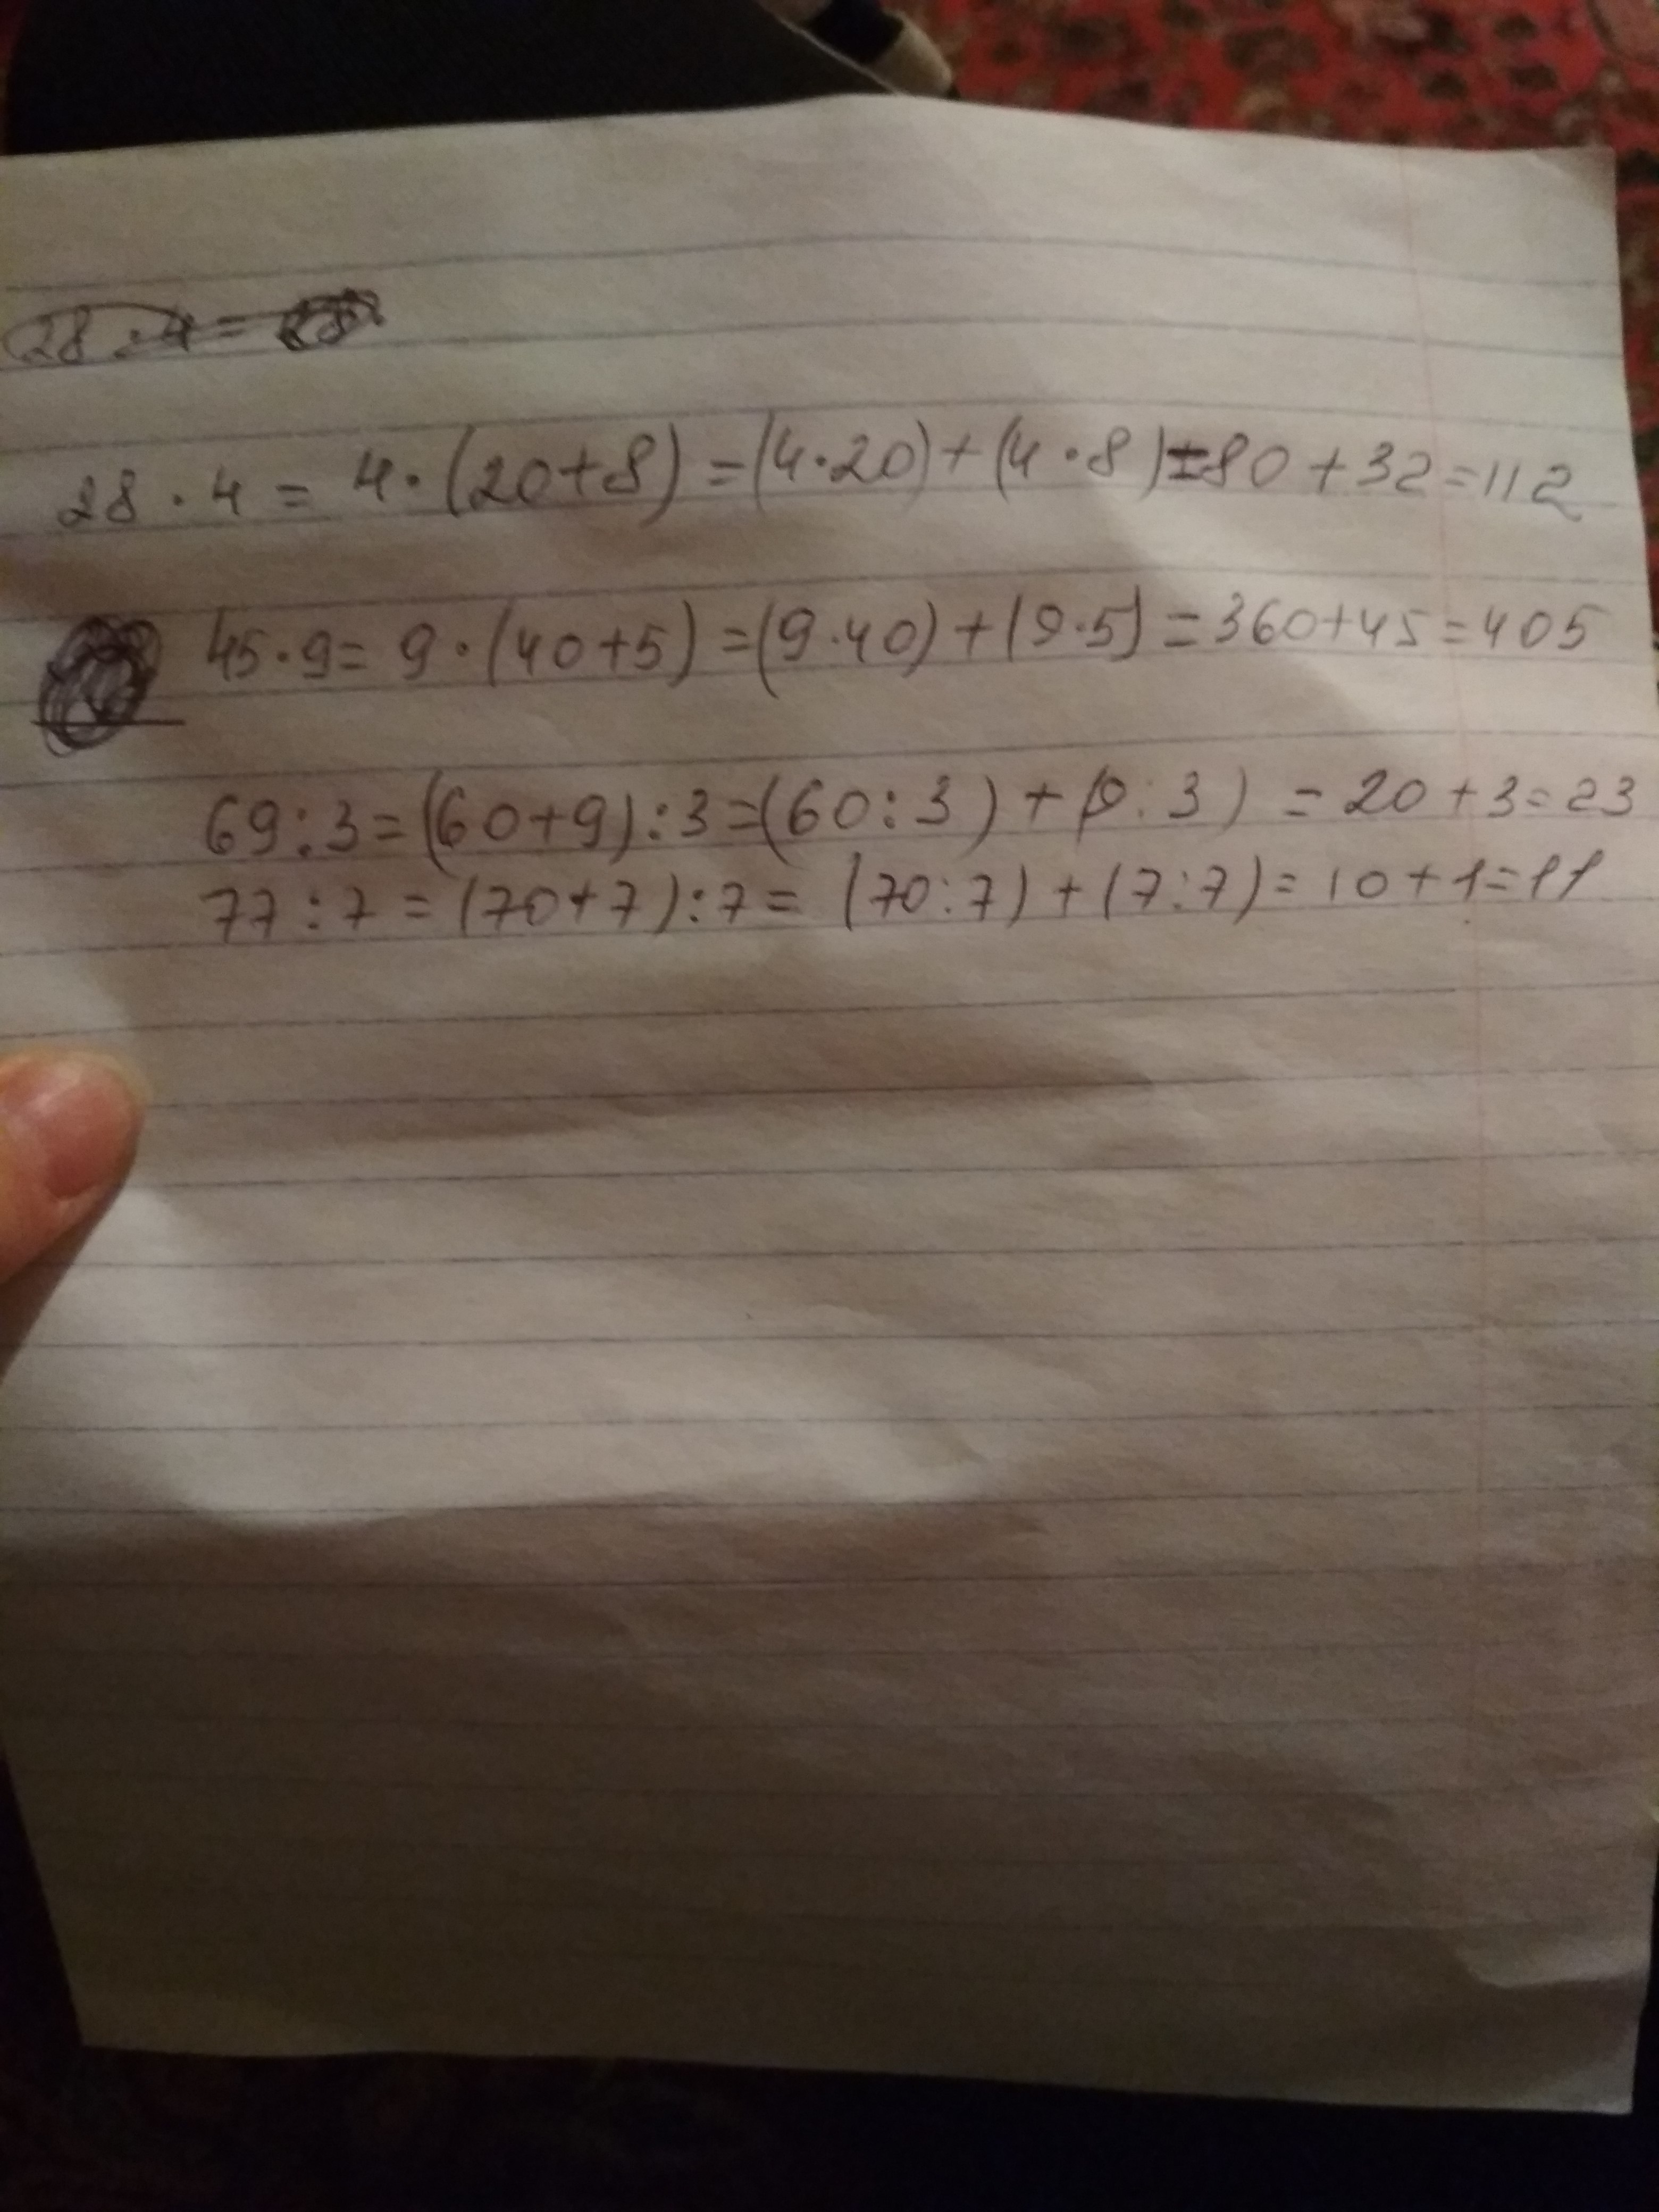 28 · 4 =
28 · 4 = 4 · (20+8) = (4·20) + (4 · 8) = 80 + 32 = 112
45 · 9 = 9 · (40+5) = (9·40) + (9·5) = 360+45 = 405
69:3 = (60+9):3 = (60:3) + (9:3) = 20 + 3 = 23
77:7 = (70+7):7 = (70:7) + (7:7) = 10 + 1 = 11